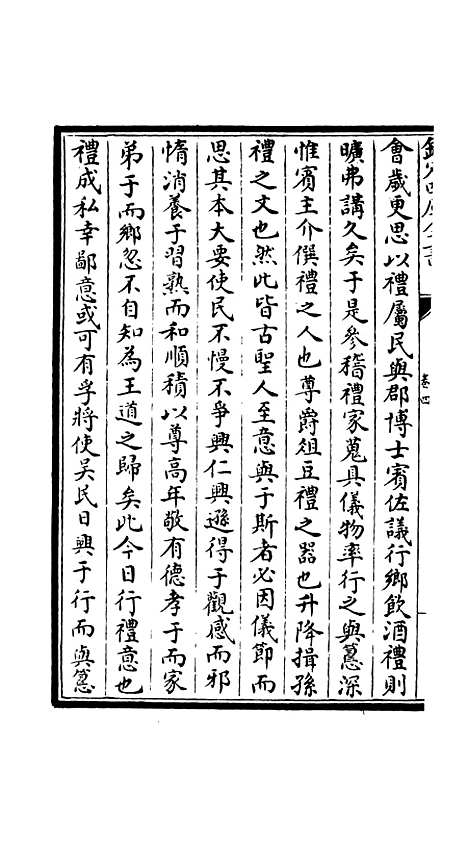 欽定四庫全書
卷四
會歲更思以禮屬民與郡博士賓佐議行鄉飲酒禮則
曠弗講久矣于是參稽禮家蒐具儀物率行之與𥲅深
惟賓主介僎禮之人也尊爵俎豆禮之器也升降揖孫
禮之文也然此皆古聖人至意與于斯者必因儀節而
思其本大要使民不慢不爭興仁興遜得于觀感而邪
惰消養于習熟而和順積以尊高年敬有德孝于而家
弟于而鄉忽不自知為王道之歸矣此今日行禮意也
禮成私幸鄙意或可有孚將使吳民日興于行而與𥲅